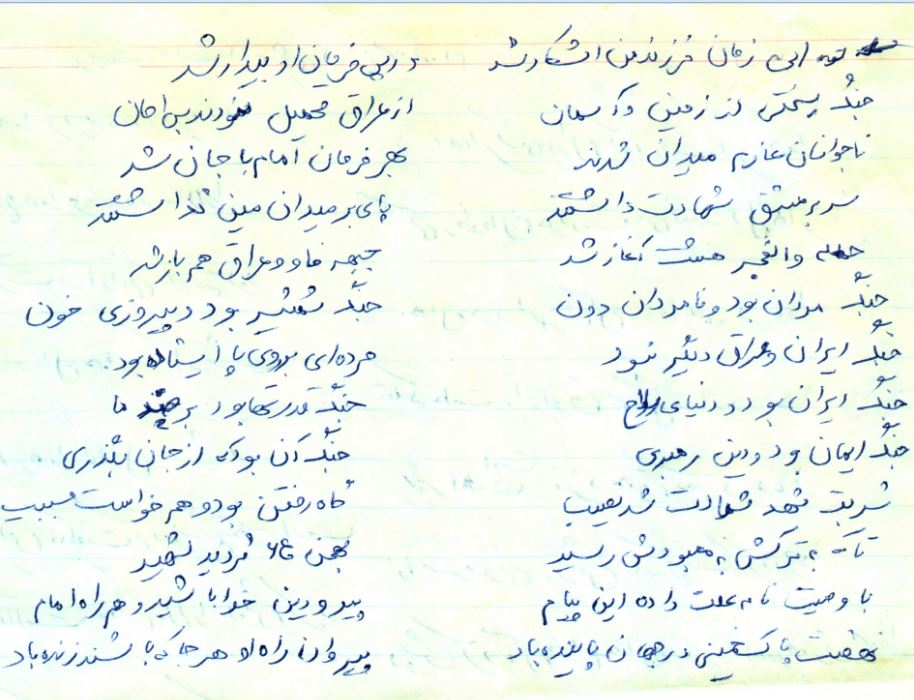 این زمان فرزند من آشکار شد در پی فرمان او بیدار شد
جنگ سختی از زمین و آسمان از عراق تحمیل نمودند بس امان
تا جوانان عازم میدان شدند بهر فرمان امام با جان شد
سر بر عشق شهادت داشتند پای بر میدان مین گذاشتند
حمله والفجر هشت آغاز شد جبهه فاو و عراق هم باز شد
جنگ مردان بود و نامردان دون جنگ شمشیر بود و پیروزی خون
جنگ ایران و عراق دیگر نبود مرده‌ای بر روی پا ایستاده بود
جنگ ایران بود و دنیای جنگ قدرتها بود بر ضد ما
جنگ ایمان بود و دین رهبری جنگ آن بود که از جان بگذری
شربت شهد شهادت شد نصیب گاه رفتن بود و هم خواست
تا که به ترکش به معبودش رسید بهمن ۶۴ گردید شهید
با وصیت نامه علت داده این پیام پیرو دین خدا باشید و همراه امام
نهضت پاک خمینی در جهان پاینده باد پیروان راه او هر جا که باشند زنده باد